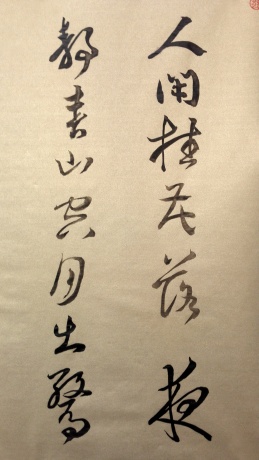 人闲桂花落夜
静春山空月出惊